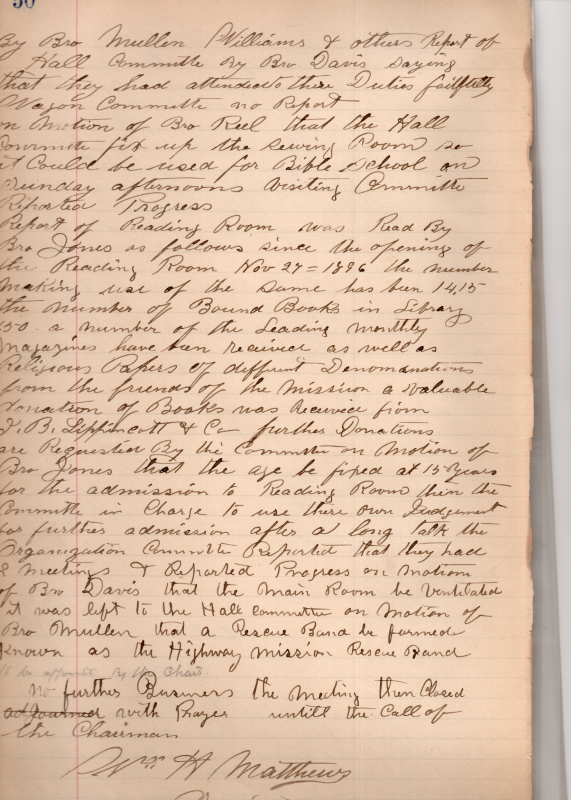 50
By Bro Mullen Williams & others Report of
Hall Committe By Bro Davis saying
that they had attended to there Duties faithfully
Wagon Committe no Report
on Motion of Bro Reel that the Hall
Committe fix up the sewing Room so
it Could be used for Bible School on
Sunday afternoons Visiting Committe
Reported Progress
Report of Reading Room was Read By
Bro Jones as follows since the opening of
the Reading Room Nov 27 = 1896 the number
making use of the same has been 14,15
the number of Bound Books in Library
650 a number of the Leading monthly
magazines have been received as well as
Religious Papers of different Denomanations
from the friends of the mission a valuable
donation of Books was Received from
J. B. Lippincott & Co further Donations
are Requested By the Committe on Motion of
Bro Jones that the age be fixed at 15 Years
for the admission to Reading Room then the
Committe in Charge to use there own Judgement
for further admission after a long talk the
Organization Committe Reported that they had
2 meetings & Reported Progress on motion
of Bro Davis that the main Room be Ventilated
it was left to the Hall Committe on Motion of
Bro Mullen that a Rescue Band be formed
Known as the Highway mission Rescue Band
to be appointed By the Chair.
no further Business the meeting then Closed
adjourned with Prayer untill the Call of
the Chairman
Wm H Matthews